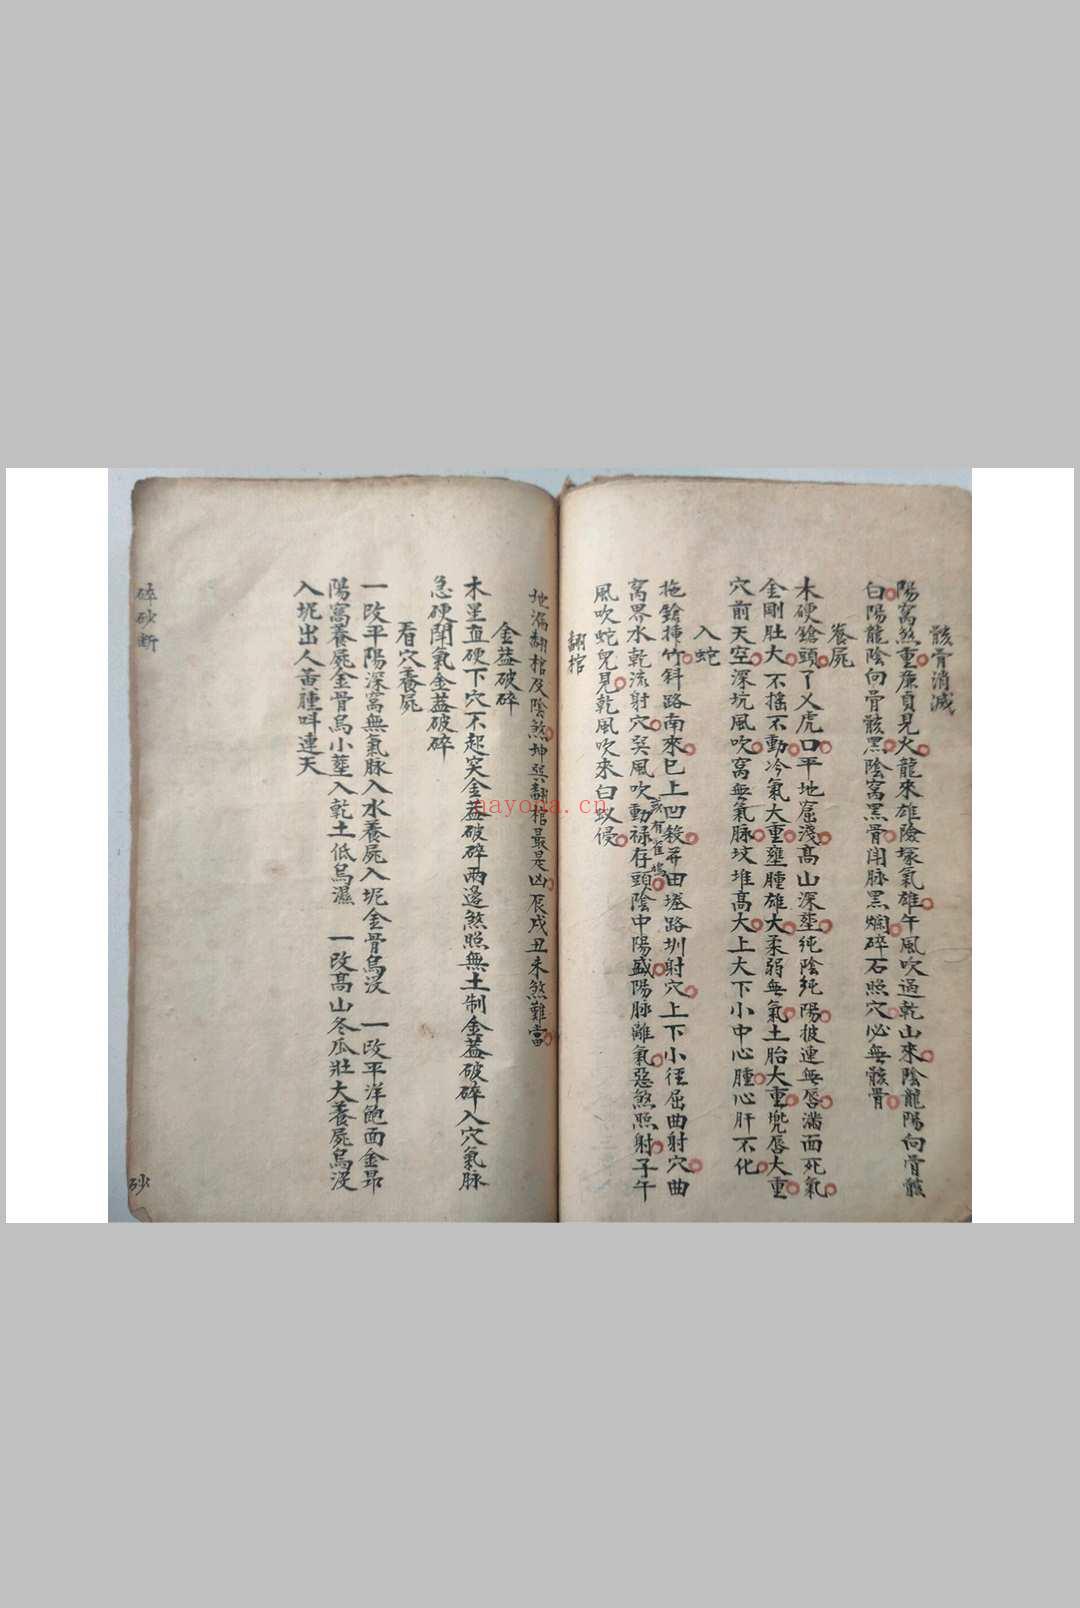 骸骨消滅
陽窩煞重廉貞見火龍來雄險塚氣雄午風吹過乾山來陰龍陽向骨骸
白陽龍陰向骨骸黑陰窩黑骨闭脉黑爛碎石照穴必無骸骨
養屍
木硬鎗頭了乂虎口平地窟淺高山深堃纯陰纯陽披連無唇滿面死氣
金剛肚大不搖不動冷氣大重壅腫雄大柔弱無氣土胎大重兜唇大重
穴前天空深坑風吹窩無氣脉坟堆高大上大下小中心腫心肝不化
入蛇
拖鎗揷竹斜路南來巳上凹殺并田塆路圳射穴上下小徑屈曲射穴曲
窩界水乾流射穴巽風吹動禄存頭陰中陽盛陽脉離氣惡煞照射子午
亥有雀鳴
風吹蛇兒見乾風吹來白蚁侵
翻棺
地漏翻棺反陰煞坤與翻棺最是凶辰戌丑未煞難當
金盖破碎
木星直硬下穴不起突金盖破碎两邊煞照無土制金盖破碎入穴氣脉
急硬閗氣金盖破碎
看穴養屍
一改平陽深窩無氣脉入水養屍入坭金骨烏没 一改平洋飽面金昂
陽窩養屍金骨烏小堃入乾土低烏濕 一改高山冬瓜壯大養屍烏没
入坭出人黄腫呌連天
碎砂断
砂
nayona.cn